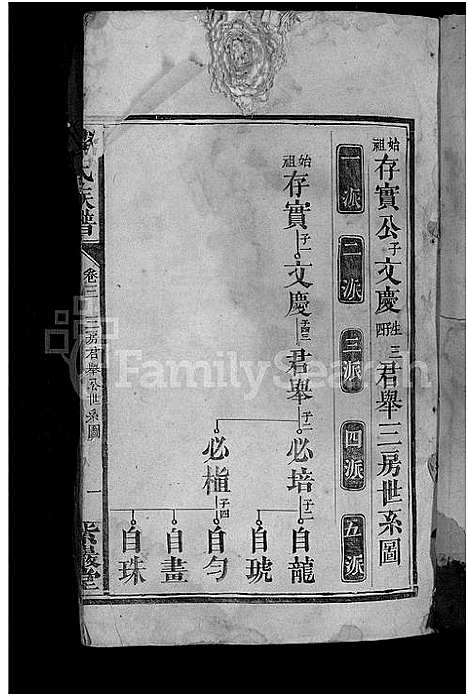 始祖存實公子文慶生四子三君舉三房世系圖
一派
二派
三派
四派
五派
始祖存實子一文慶子四三君舉子二必培子二自龍
自琥
必植子四自勻
自畫
自珠
氏族譜
卷三
三房君舉公世系圖
一
FamilySearch